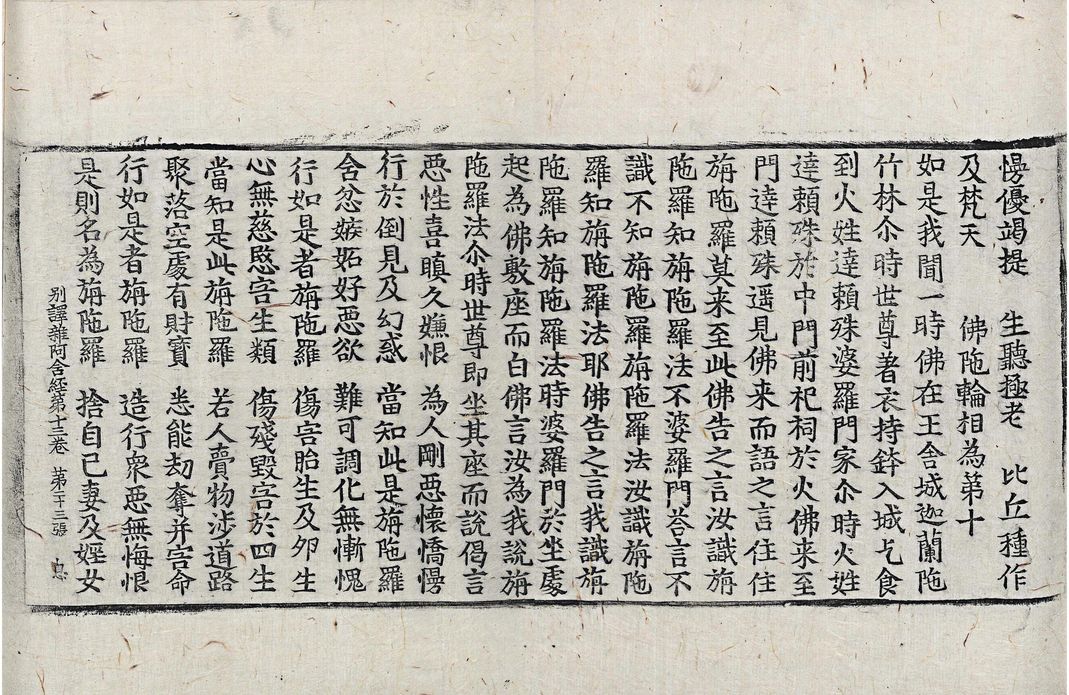 慢優竭提　生聽極老　比丘種作
及梵天　佛陁輪相為第十
如是我聞一時佛在王舍城迦蘭陁
竹林尒時世尊著衣持鉢入城乞食
到火姓達賴殊婆羅門家尒時火姓
達賴殊於中門前祀祠於火佛来至
門達賴殊遥見佛来而語之言住住
旃陁羅莫来至此佛告之言汝識旃
陁羅知旃陁羅法不婆羅門荅言不
識不知旃陁羅旃陁羅法汝識旃陁
羅知旃陁羅法耶佛告之言我識旃
陁羅知旃陁羅法時婆羅門於坐處
起為佛敷座而白佛言汝為我說旃
陁羅法尒時世尊即坐其座而說偈言
惡性喜瞋久嫌恨　為人剛惡懷憍慢
行於倒見及幻惑　當知此是旃陁羅
舍忿嫉妬好惡欲　難可調化無慚愧
行如是者旃陁羅　傷害胎生及夘生
心無慈愍害生類　傷殘毀害於四生
當知是此旃陁羅　若人賷物涉道路
聚落空處有財寶　悉能劫奪并害命
行如是者旃陁羅　造行衆惡無悔恨
是則名為旃陁羅　捨自己妻及婬女
别譯雜阿含經第十三卷　第二十三張　息